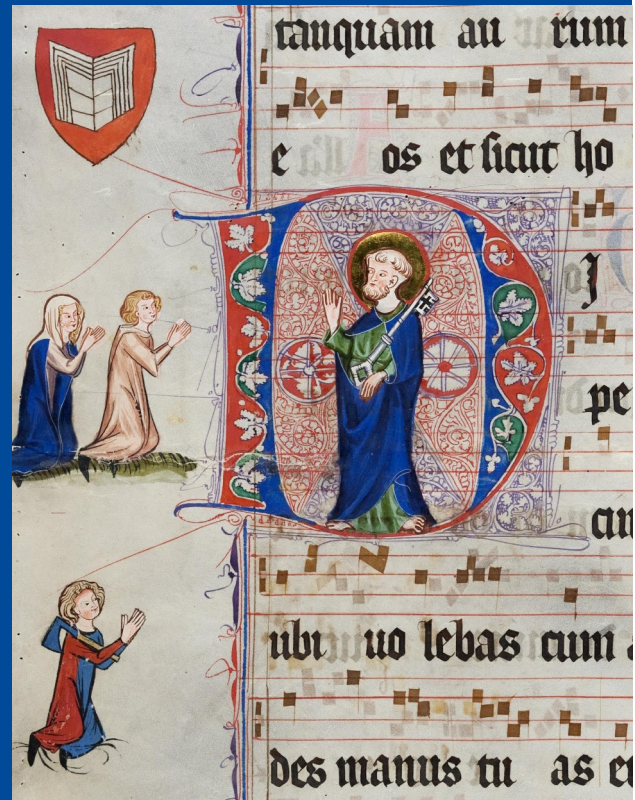 tanquam au rum
e os et sicut ho
J
pe
cin
ubi uo lebas cum a
des manus tu as et